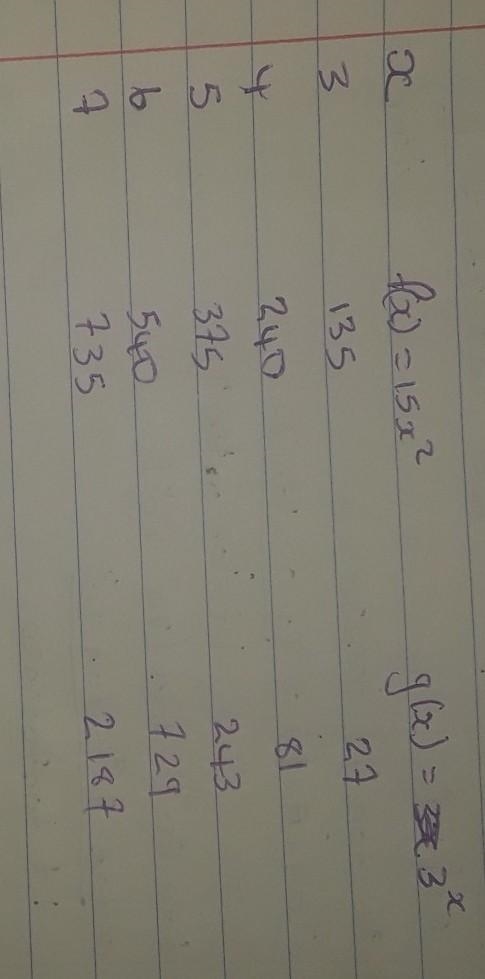 x f(x) = 15x² g(x) = 3ˣ
3 135 27
4 240 81
5 375 243
6 540 729
7 735 2187